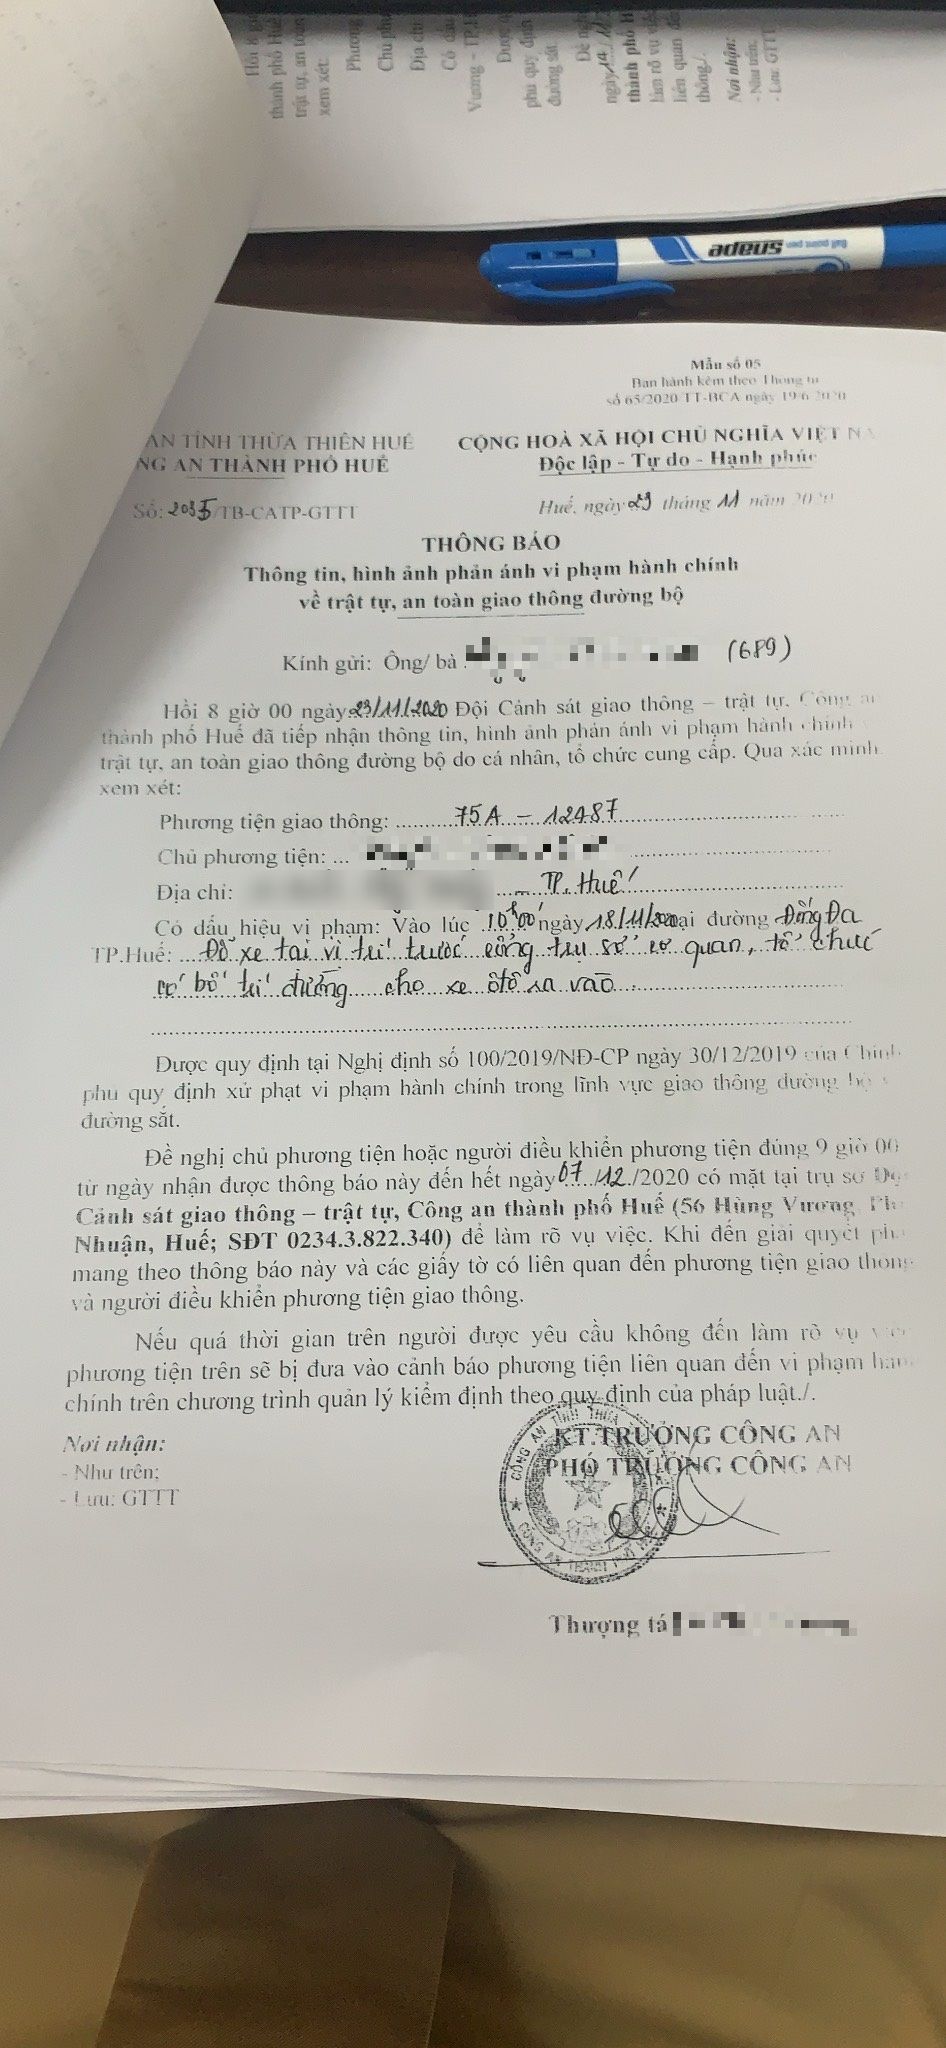 Hồi 8 g
thành phố Huế
trật tự, an toàn
xem xét:
Phương
Chủ phư
Địa chỉ:
Có dấu
Vương - TP.H
Được q
phủ quy định
đường sắt
Đề ngh
ngày 14
thành phố H
làm rõ vụ việ
liên quan đế
thông./.
Nơi nhận:
- Như trên;
- Lưu: GTTT
snapə
Ball point pen
Mẫu số 05
Ban hành kèm theo Thông tư
số 65/2020 TT-BCA ngày 19/6/2020
AN TỈNH THỪA THIÊN HUẾ
NG AN THÀNH PHỐ HUẾ
CỘNG HOÀ XÃ HỘI CHỦ NGHĨA VIỆT NA
Độc lập - Tự do - Hạnh phúc
Số: 2035/TB-CATP-GTTT
Huế, ngày 23 tháng 11 năm 2020
THÔNG BÁO
Thông tin, hình ảnh phản ánh vi phạm hành chính
về trật tự, an toàn giao thông đường bộ
Kính gửi: Ông/ bà : (689)
Hồi 8 giờ 00 ngày 23/11/2020 Đội Cảnh sát giao thông – trật tự. Công an
thành phố Huế đã tiếp nhận thông tin, hình ảnh phản ánh vi phạm hành chính
trật tự, an toàn giao thông đường bộ do cá nhân, tổ chức cung cấp. Qua xác minh
xem xét:
Phương tiện giao thông: 75A - 12487
Chủ phương tiện: ...
Địa chỉ: TP. Huế
Có dấu hiệu vi phạm: Vào lúc 10h00' ngày 18/11/2020 tại đường Đống Đa
TP.Huế: Đỗ xe tại vị trí trước cổng trụ sở cơ quan, tổ chức
có bố trí đường cho xe ôtô ra vào
Được quy định tại Nghị định số 100/2019/NĐ-CP ngày 30/12/2019 của Chính
phủ quy định xử phạt vi phạm hành chính trong lĩnh vực giao thông đường bộ
đường sắt.
Đề nghị chủ phương tiện hoặc người điều khiển phương tiện đúng 9 giờ 00
từ ngày nhận được thông báo này đến hết ngày 07/12/2020 có mặt tại trụ sở Độ
Cảnh sát giao thông – trật tự, Công an thành phố Huế (56 Hùng Vương, Ph
Nhuận, Huế; SĐT 0234.3.822.340) để làm rõ vụ việc. Khi đến giải quyết phả
mang theo thông báo này và các giấy tờ có liên quan đến phương tiện giao thông
và người điều khiển phương tiện giao thông.
Nếu quá thời gian trên người được yêu cầu không đến làm rõ vụ việc
phương tiện trên sẽ bị đưa vào cảnh báo phương tiện liên quan đến vi phạm hàn
chính trên chương trình quản lý kiểm định theo quy định của pháp luật./.
Nơi nhận:
- Như trên;
- Lưu: GTTT
KT.TRƯỞNG CÔNG AN
PHÓ TRƯỞNG CÔNG AN
CÔNG AN TỈNH THỪA
CÔNG AN THÀNH PHỐ HUẾ
Thượng tá